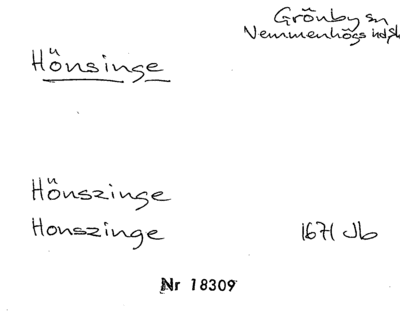 Grönby sn
Vemmenhögs hd, Sk
Hönsinge
Hönszinge
Honszinge 1671 Jb
Nr 18309